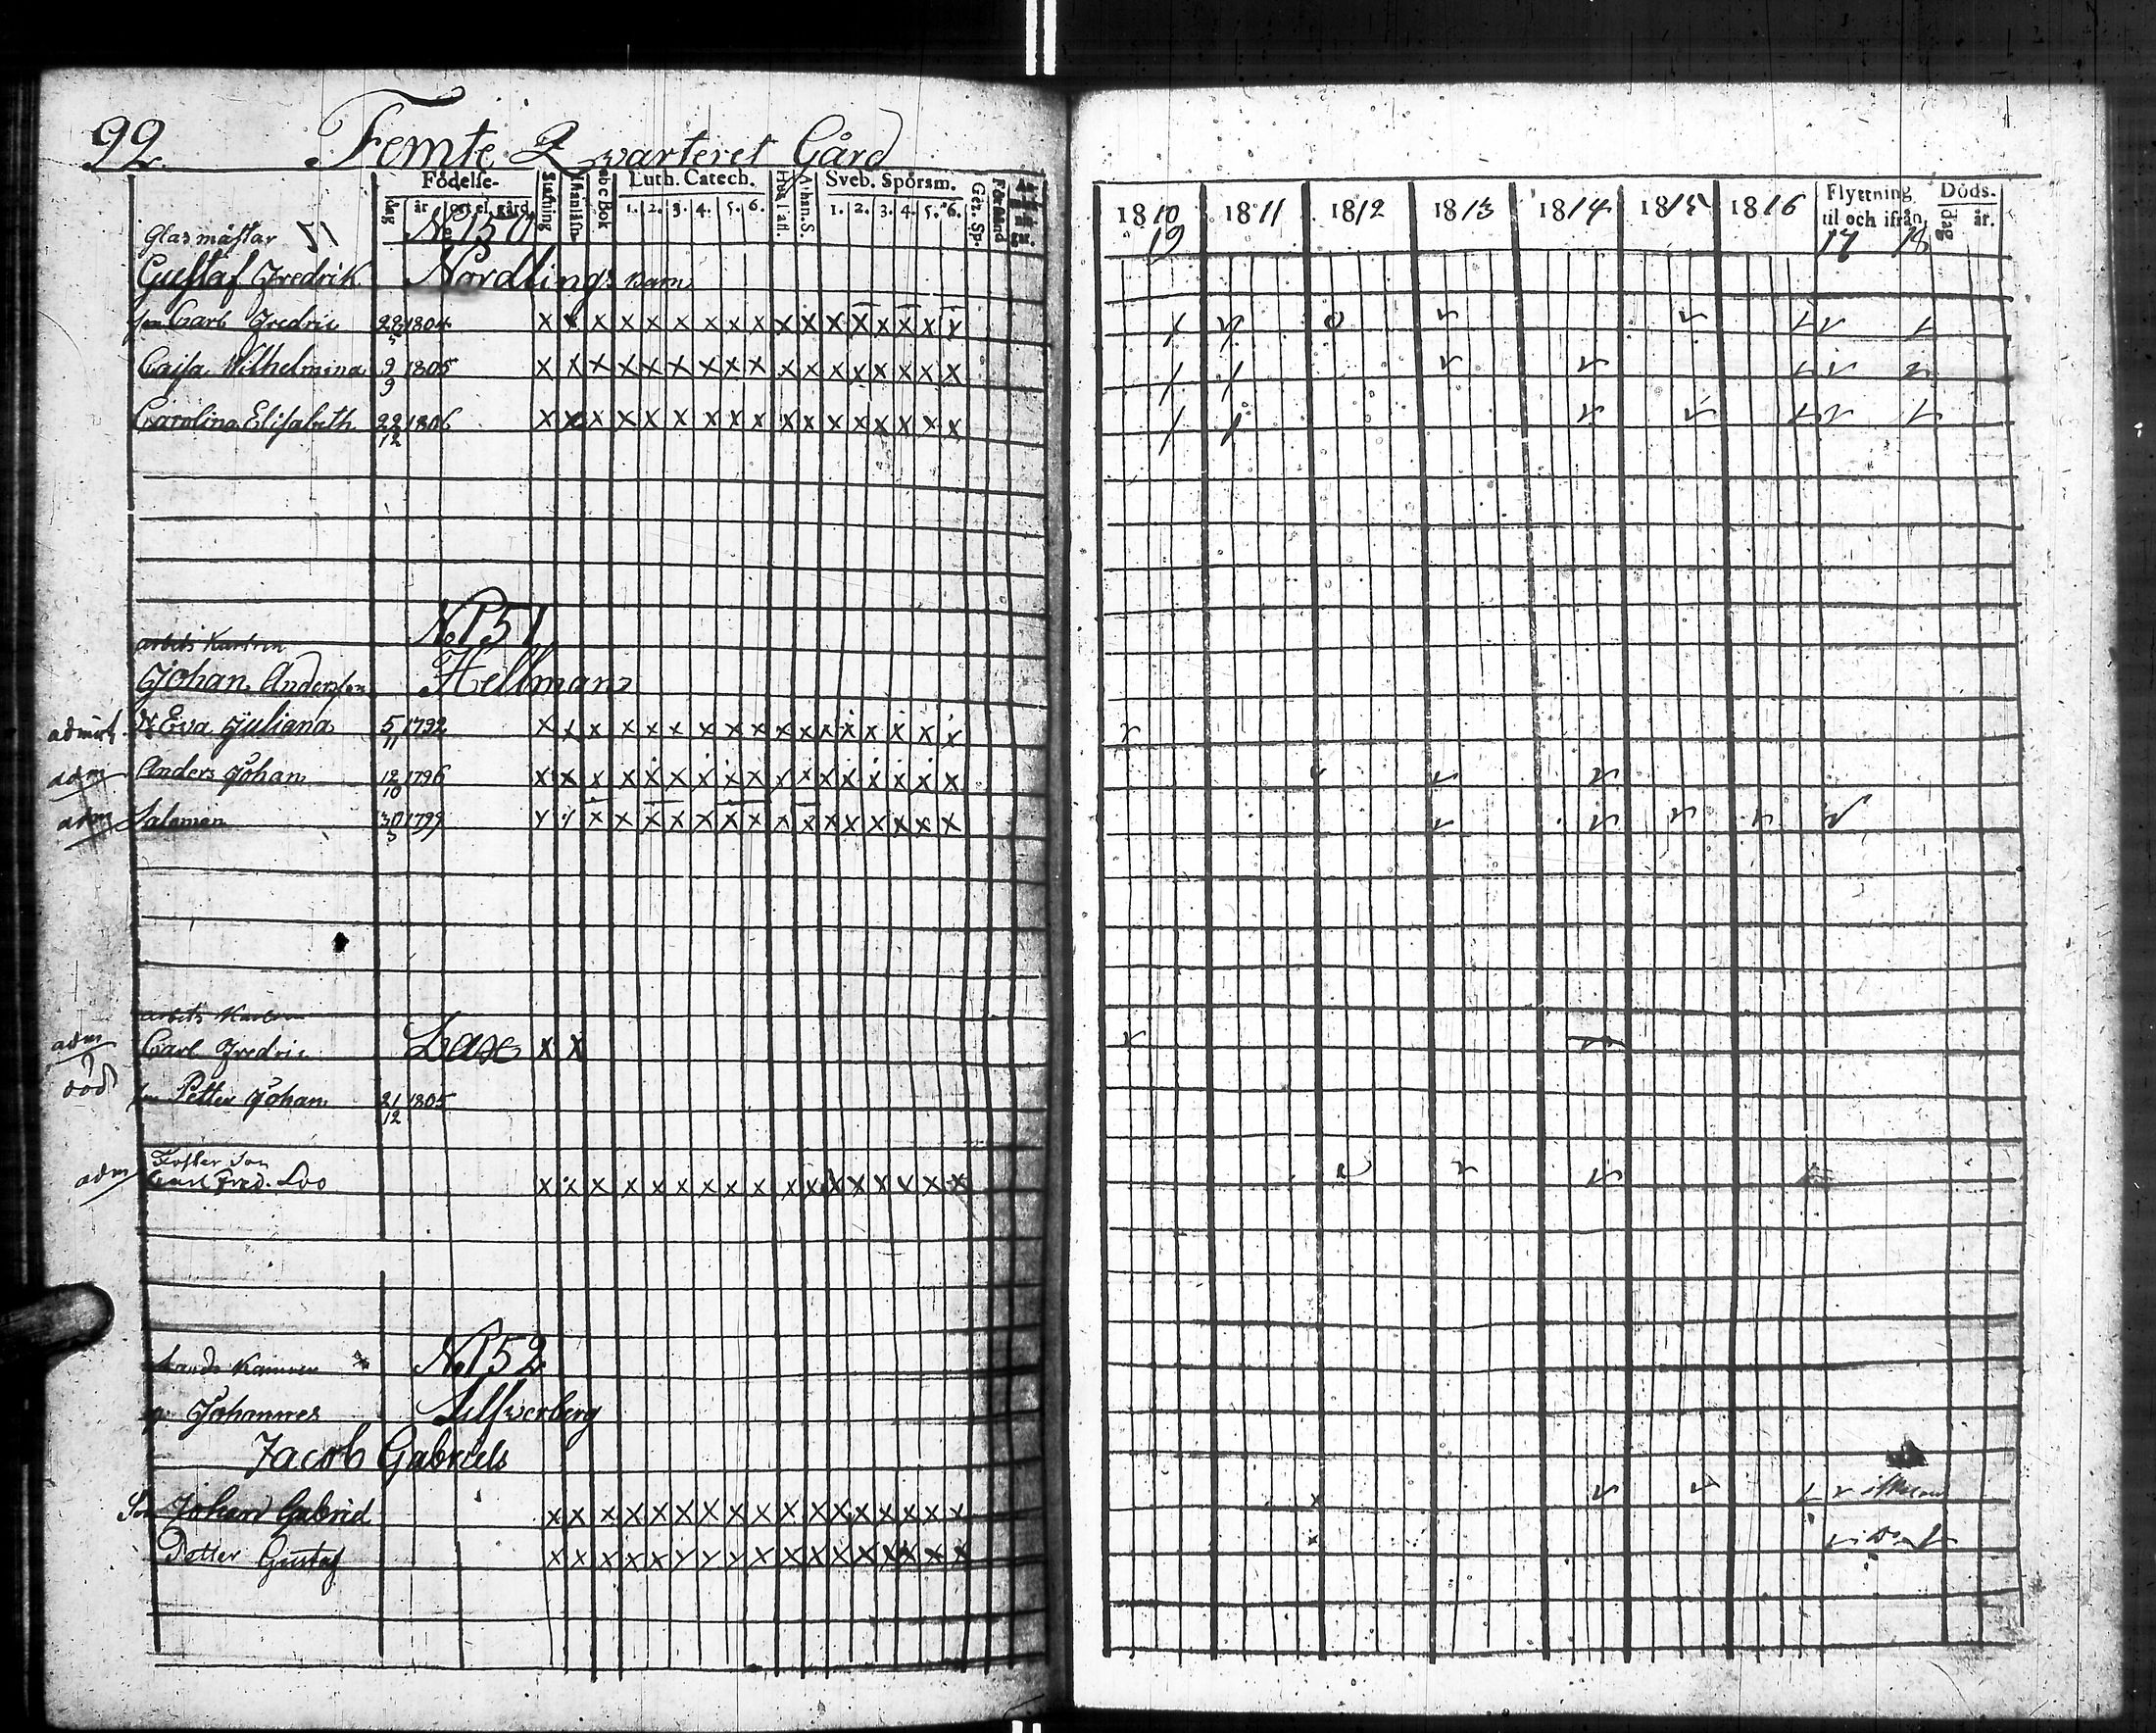 92. Femte Qvarteret Gård
Födelse-
dag år ort el. gård
Stafning
abc Bok
Luth. Catech.
1. 2. 3. 4. 5. 6.
Athan. S.
Sveb. Spörsm.
1. 2. 3. 4. 5. 6.
Gez. Sp.
Förstånd
1810 1811 1812 1813 1814 1815 1816
Flyttning til och ifrån
Döds-
dag år.
19 17 18
Glasmästar No 150
Gustaf Fredrik Nordlings barn
son Carl Fredric 22/5 1804
Cajsa Wilhelmina 9/9 1805
Carolina Elisabeth 22/12 1806
No 151
arbets Karlen
Johan Andersson Hellman
Eva Juliana 5/11 1792
adm Anders Johan 12/10 1796
adm Salomon 30/3 1799
arbets Karlen
adm Carl Fredric Lax
död son Petter Johan 21/12 1805
Foster Son
adm Carl Fred. Loo
No 152
Johannes Silfverberg
Jacob Gabriels
Son Johan Gabriel
Petter Gustaf